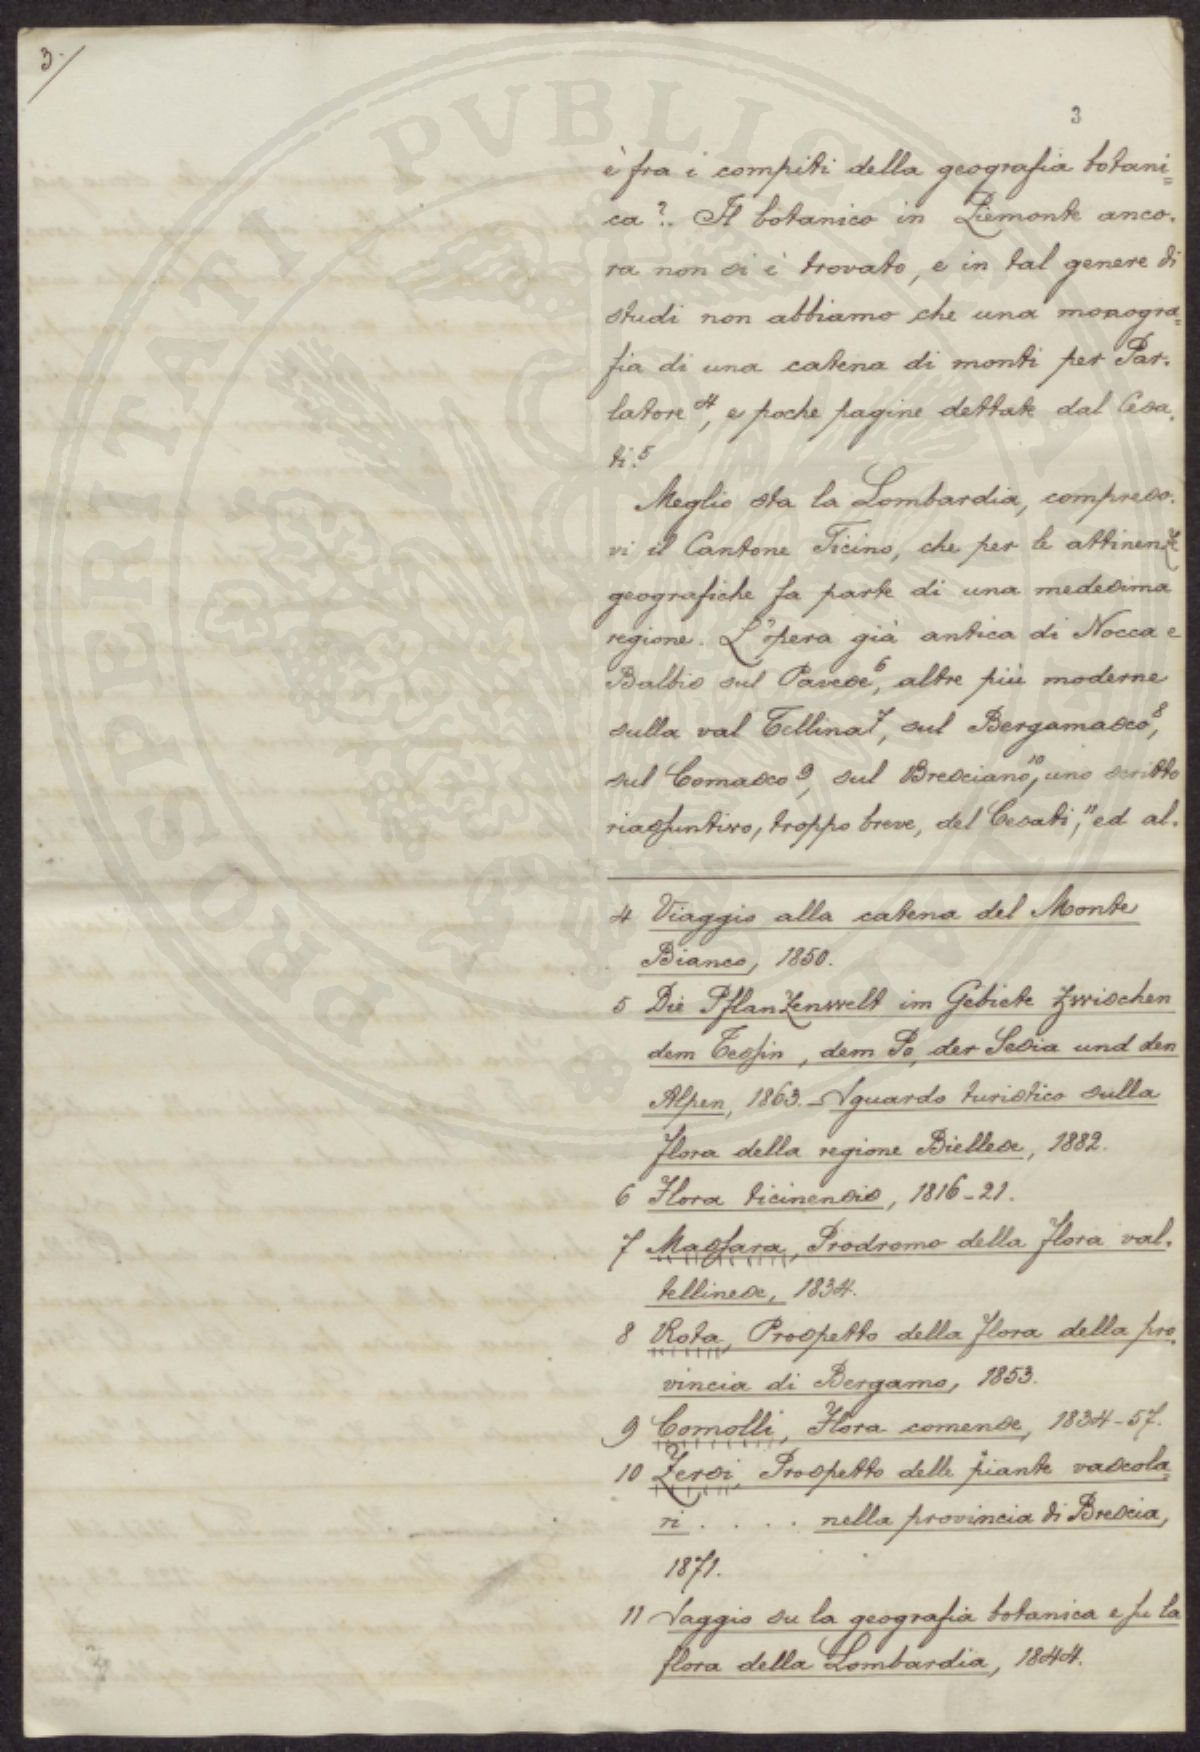 3.
3
è fra i compiti della geografia botani=
ca?. Il botanico in Piemonte anco-
ra non si è trovato, e in tal genere di
studi non abbiamo che una monogra=
fia di una catena di monti per Par-
latore 4, e poche pagine dettate dal Cesa-
ti.5
Meglio sta la Lombardia, compreso-
vi il Cantone Ticino, che per le attinenze
geografiche fa parte di una medesima
regione. L'opera già antica di Nocca e
Balbis sul Pavese6, altre più moderne
sulla val Tellina7, sul Bergamasco8,
sul Comasco9, sul Bresciano10, uno scritto
riassuntivo, troppo breve, del Cesati,11 ed al-
4 Viaggio alla catena del Monte
Bianco, 1850.
5 Die Pflanzenwelt im Gebiete zwischen
dem Tessin, dem Po, der Sesia und den
Alpen, 1863. - Sguardo turistico sulla
flora della regione Biellese, 1882.
6 Flora ticinensis, 1816-21.
7 Massara, Prodromo della flora val-
tellinese, 1834.
8 Rota, Prospetto della flora della pro-
vincia di Bergamo, 1853.
9 Comolli, Flora comense, 1834-57.
10 Zersi, Prospetto delle piante vascola=
ri . . . . nella provincia di Brescia,
1871.
11 Saggio su la geografia botanica e su la
flora della Lombardia, 1844.
PROSPERITATI PVBLICAE